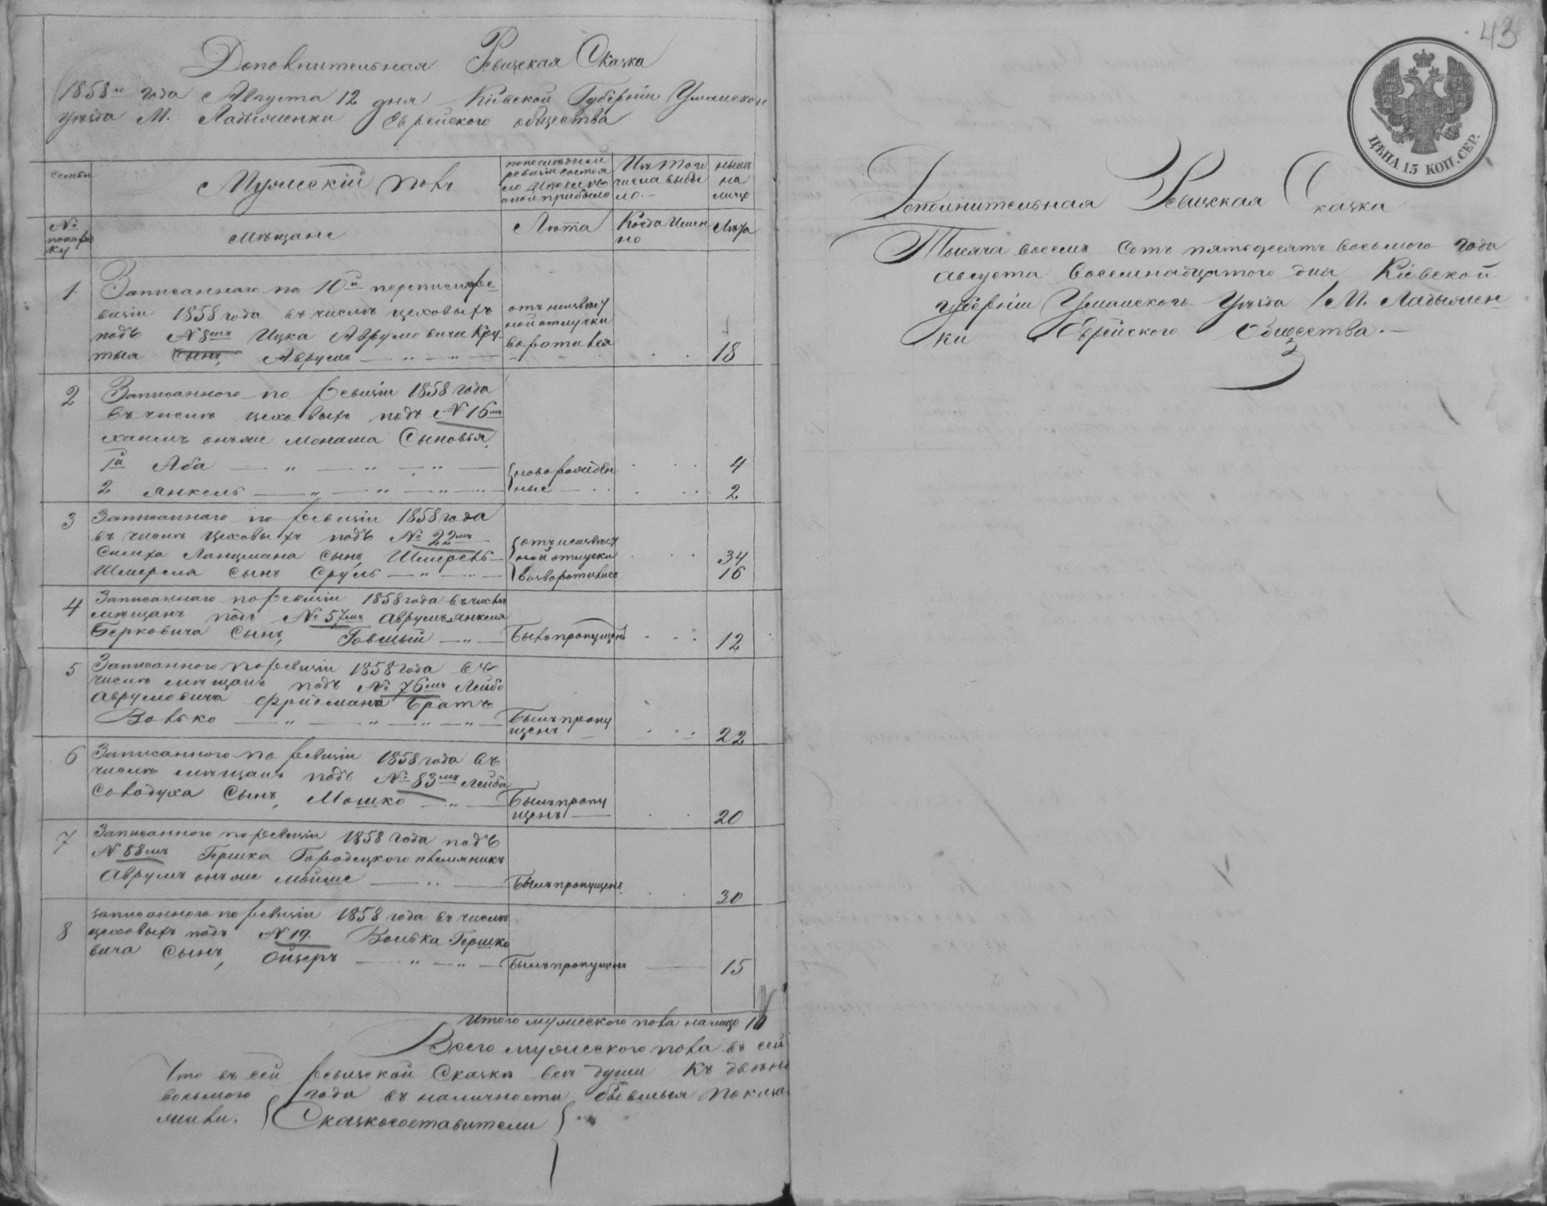 Дополнительная Ревизская Сказка
1858го года Августа 12 дня Кіевской Губерніи Уманскаго
уѣзда М. Ладыженки Еврейского общества
семьи
Мужескій полъ
по последней
ревизіи состоя
ло и после
оной прибыло
Изъ того
числа выбы
ло
ныне
на
лицо
№
по поряд
ку
мѣщане
Лѣта
Когда Имен
но
Лѣта
1
Записаннаго по 10й переписи ре
визіи 1858 года въ числѣ цеховыхъ
подъ № 8мъ Ицка Аврумовича Кру
тыя сынъ, Аврумъ
отъ неизвест
ной отлучки
воротился
18
2
Записанного по ревизіи 1858 года
въ числѣ цеховыхъ подъ № 16мъ
хаимъ онъже монаша Сыновья,
1й Аба
новорожден
4
2 Янкель
ные
2
3
Записаннаго по ревизіи 1858 года
въ числѣ цеховыхъ подъ № 22мъ
Симха Ланцмана сынъ, Шмерель
Шмереля сынъ Сруль
отъ неизвест
ной отлучки
возворотились
34
16
4
Записаннаго по ревизіи 1858 года въ числѣ
мѣщанъ подъ № 57мъ Аврумъ Янкеля
Берковича Сынъ,
Былъ пропущенъ
12
5
Записанного по ревизіи 1858 года въ
числѣ мѣщанъ подъ № 76мъ Лейбы
Аврумовича Фридмана Братъ
Волько
Былъ пропу
щенъ
22
6
Записанного по ревизіи 1858 года въ
числѣ мѣщанъ подъ № 83мъ Лейба
Соводуха Сынъ, Мошко
Былъ пропу
щенъ
20
7
Записанного по ревизіи 1858 года подъ
№ 88мъ Гершка Городецкого племянникъ
Аврумъ онъже Мойше
Былъ пропущенъ
30
8
Записанного по ревизіи 1858 года въ числѣ
цеховыхъ подъ № 19. Волька Гершко
вича Сынъ, Ойзеръ
Былъ пропущенъ
15
Итого мужеского пола на лицо 10
Всего мужеского пола въ сей
Что въ сей ревизской Сказки все души къ
восьмого года въ наличности бывшия показа
{Сказкосоставители}
43
ЦѢНА 15 КОП. СЕР.
Дополнительная Ревизская Сказка
Тысяча восемь сотъ пятьдесятъ восьмого года
августа восемнадцатого дня Кіевской
губерніи Уманского Уѣзда М. Ладыжен-
ки Еврейского Общества.